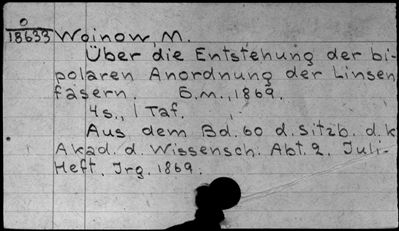 O
18633 Woinow, M.
Über die Entstehung der bi-
polaren Anordnung der Linsen
fasern. S.M., 1869.
4s., 1 Taf.
Aus dem Bd. 60 d. Sitzb. d. k
Akad. d. Wissensch. Abt. 2. Juli-
Heft. Jrg. 1869.